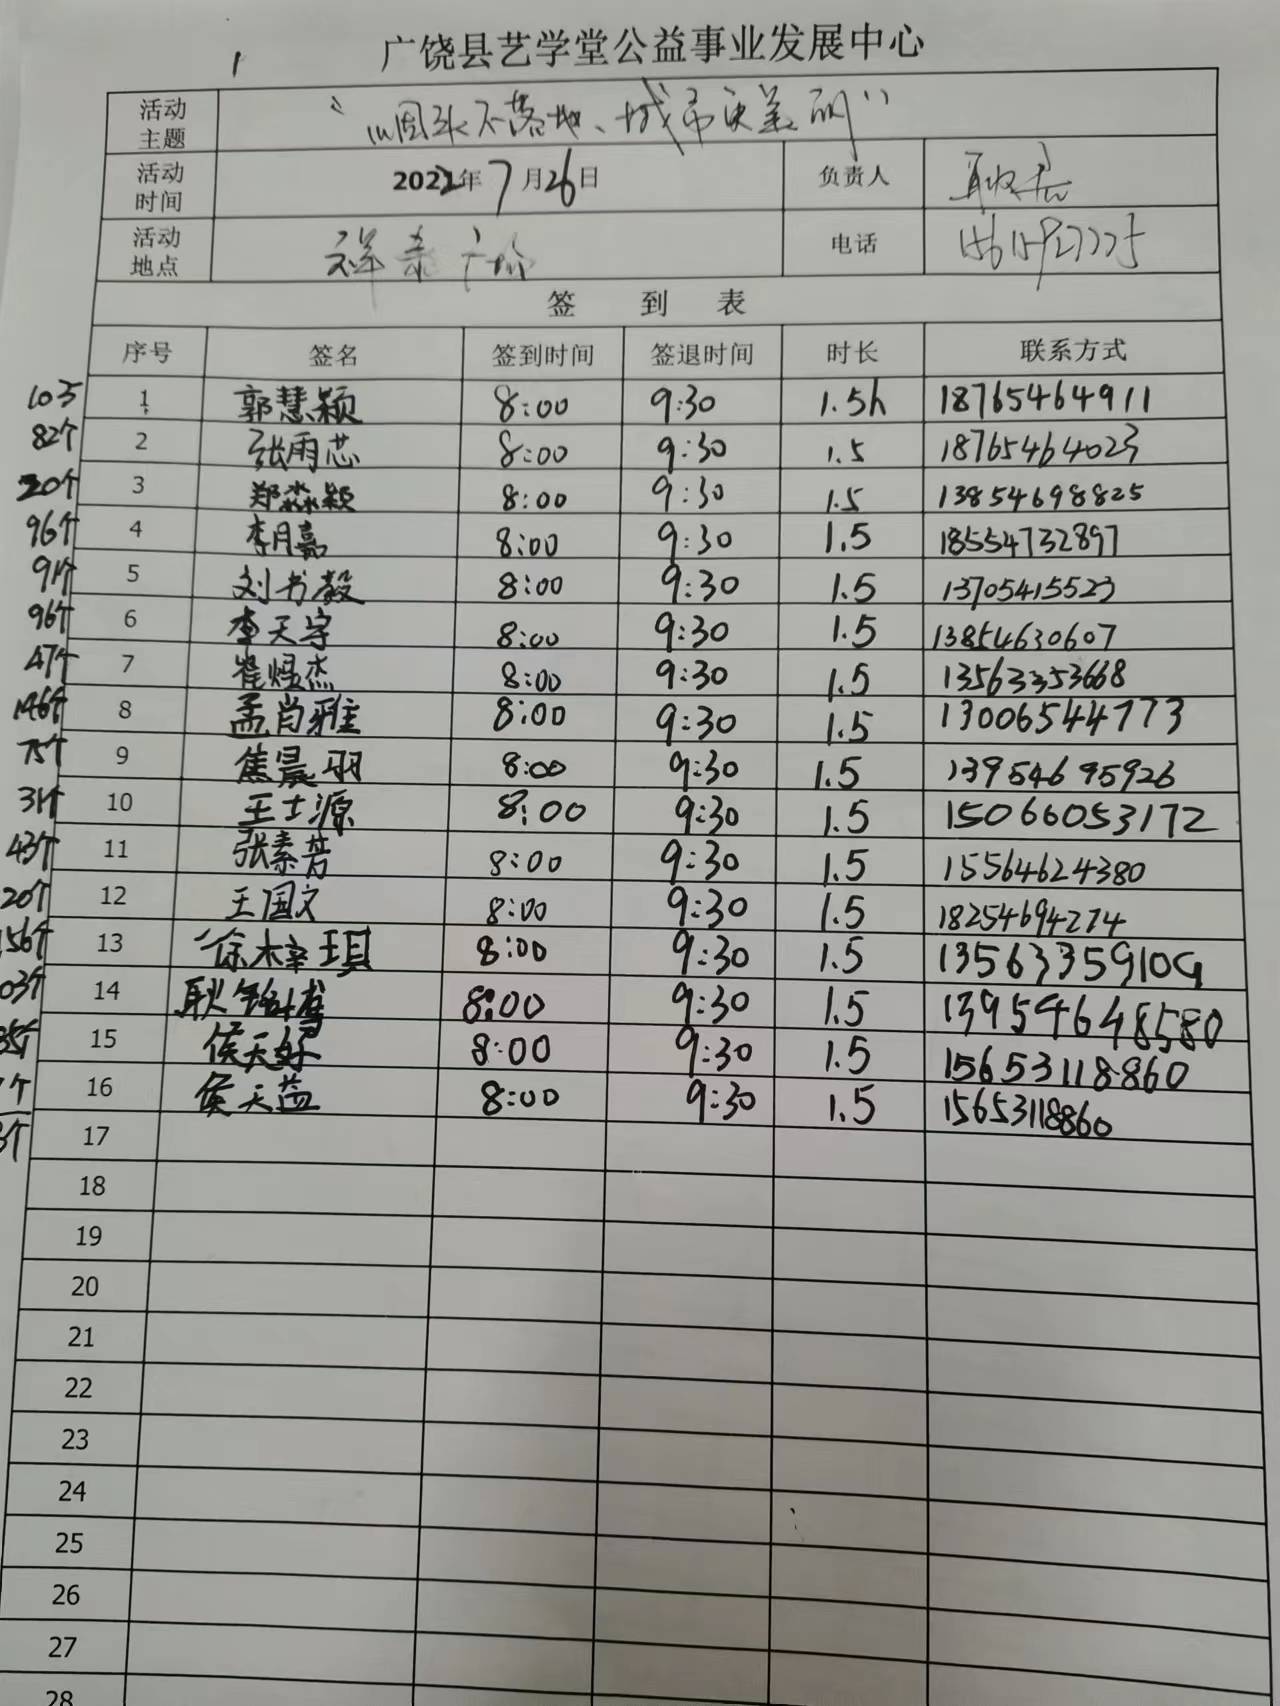 广饶县艺学堂公益事业发展中心
活动主题 "烟头不落地、城市更美丽"
活动时间 2022年7月26日 负责人
活动地点 祥泰广场 电话
签 到 表
序号 签名 签到时间 签退时间 时长 联系方式
1 郭慧颖 8:00 9:30 1.5h 18765464911
82个 2 张雨芯 8:00 9:30 1.5 18765464023
20个 3 郑淼颖 8:00 9:30 1.5 13854698825
96个 4 李月嘉 8:00 9:30 1.5 18554732897
91个 5 刘书毅 8:00 9:30 1.5 13705415523
96个 6 李天宇 8:00 9:30 1.5 13854630607
47个 7 崔煜杰 8:00 9:30 1.5 13563353668
146个 8 孟肖雅 8:00 9:30 1.5 13006544773
75个 9 焦晨羽 8:00 9:30 1.5 13954695926
31个 10 王士源 8:00 9:30 1.5 15066053172
43个 11 张素芳 8:00 9:30 1.5 15564624380
20个 12 王国文 8:00 9:30 1.5 18254694274
56个 13 徐梓琪 8:00 9:30 1.5 13563359109
03个 14 耿铭博 8:00 9:30 1.5 13954648580
35个 15 侯天好 8:00 9:30 1.5 15653118860
1个 16 侯天益 8:00 9:30 1.5 15653118860
3个 17
18
19
20
21
22
23
24
25
26
27
28